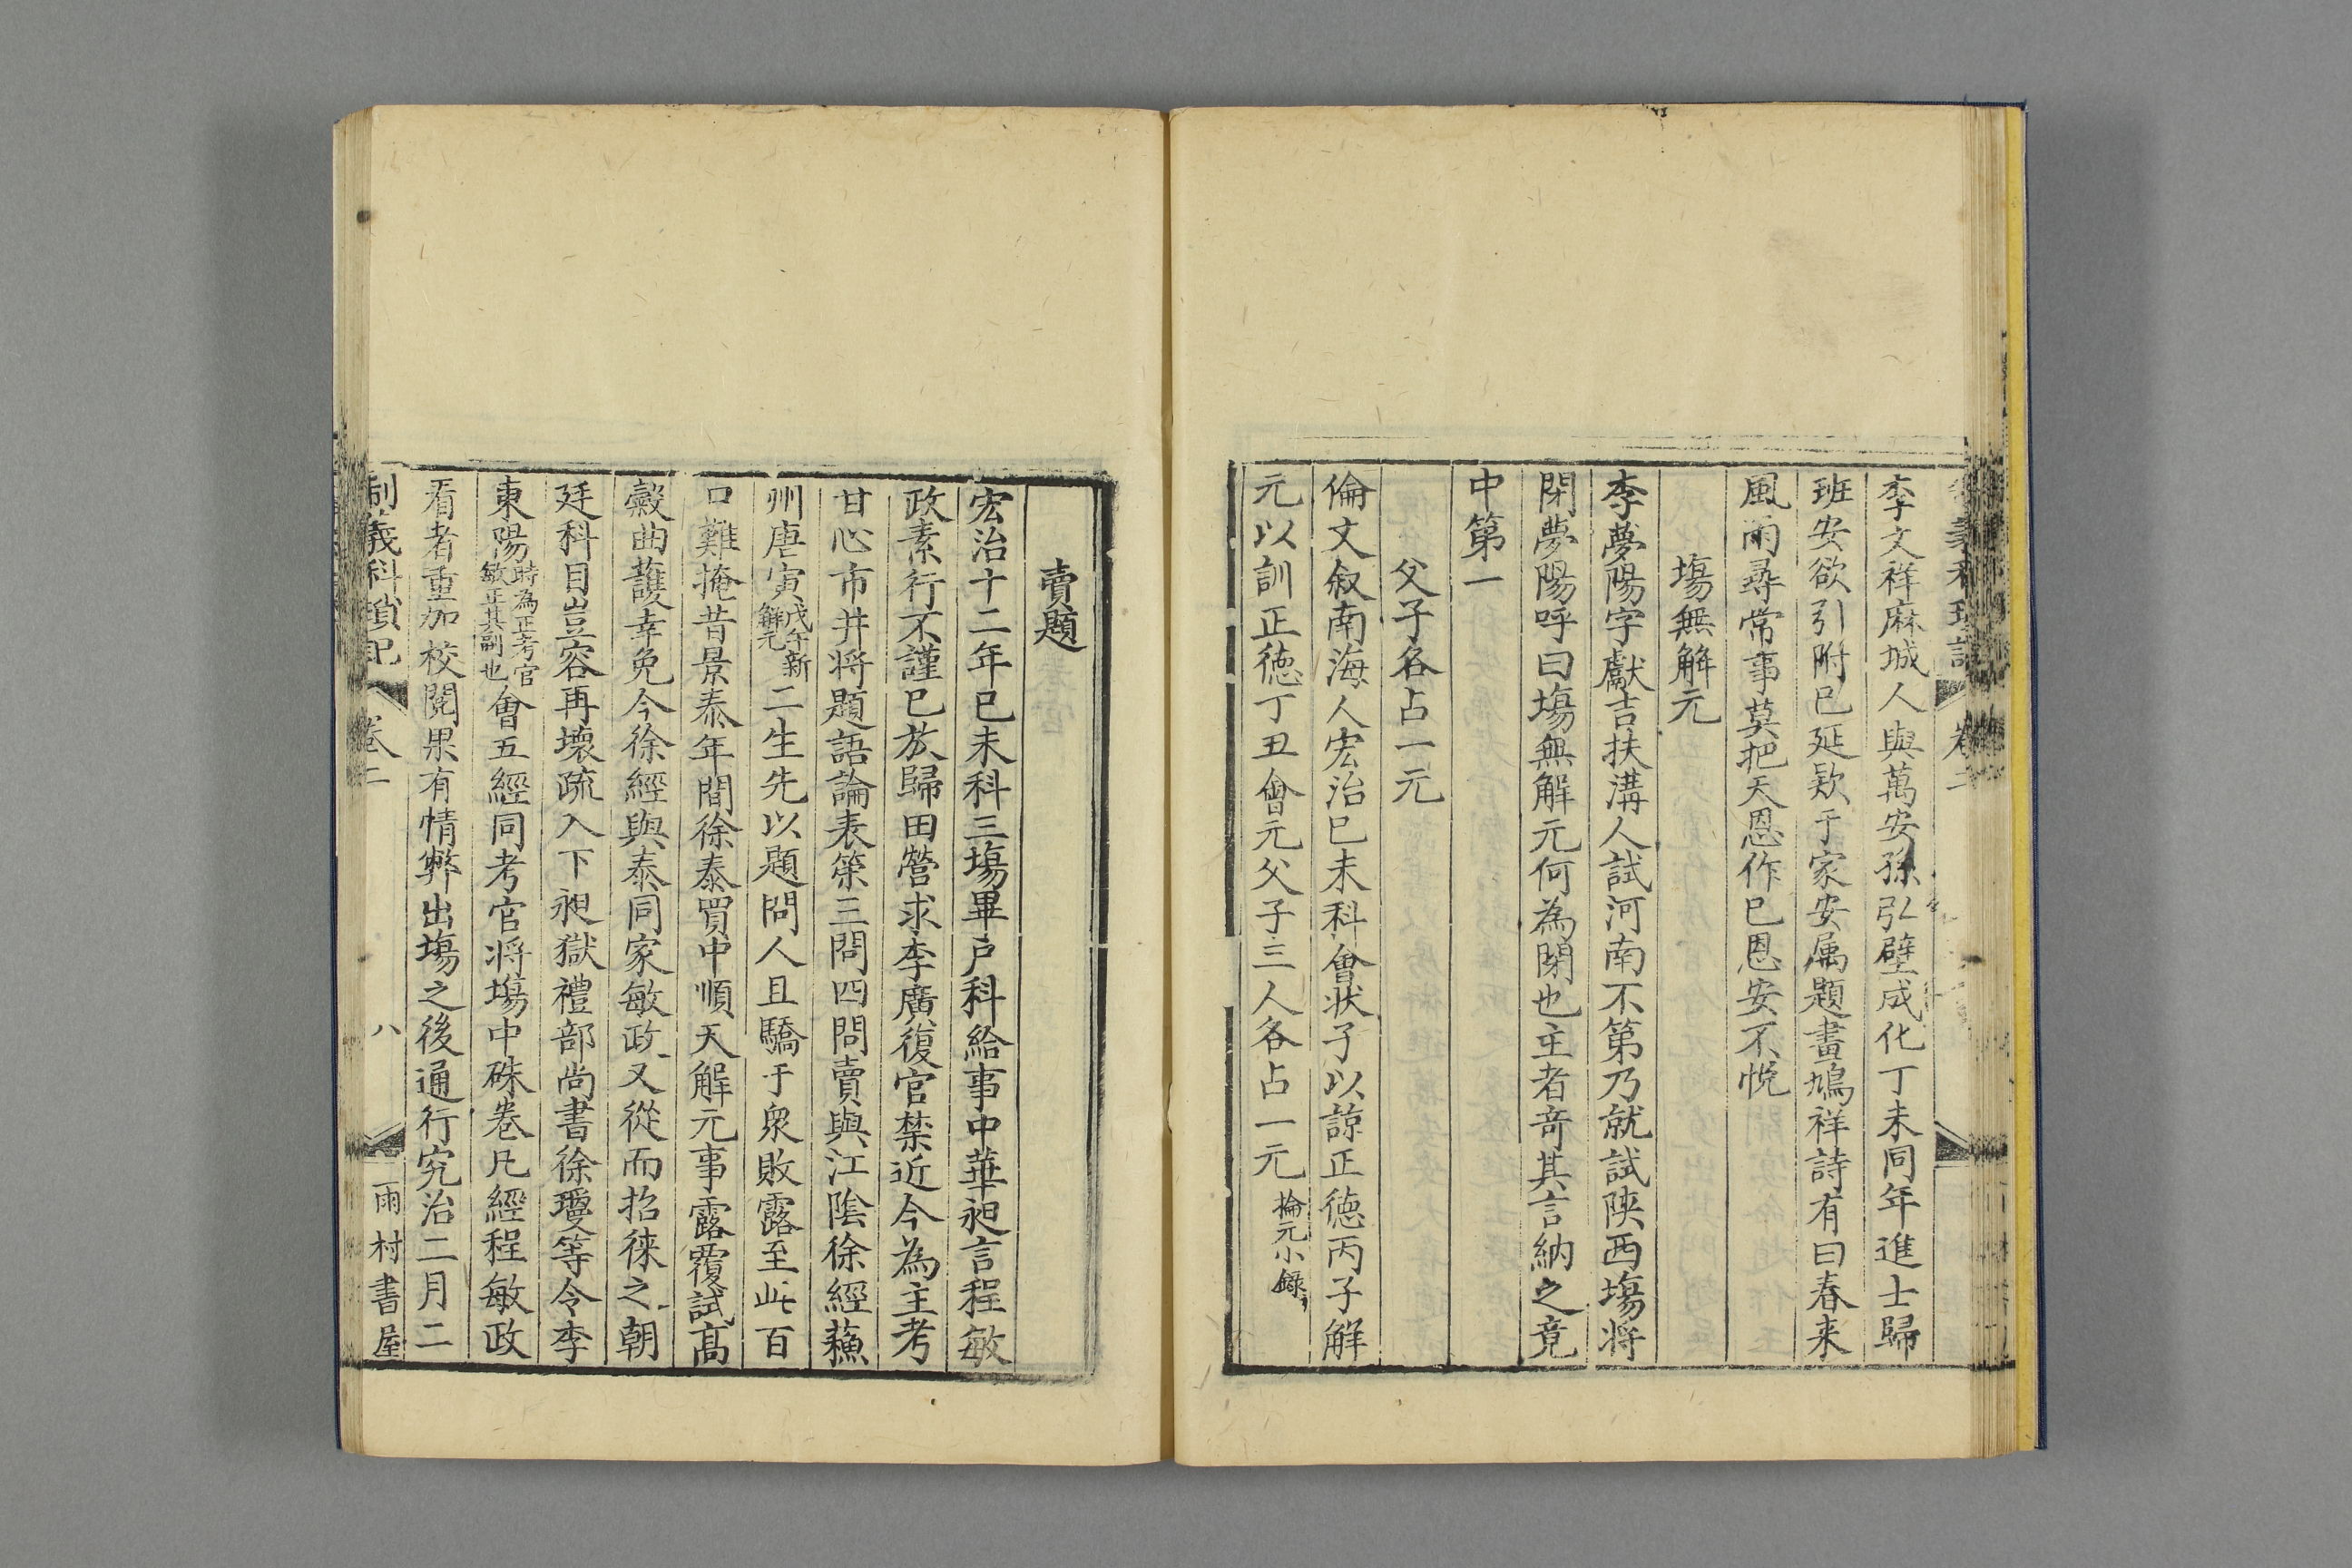 李文祥麻城人與萬安孫弘壁成化丁未同年進士歸
班安欲引附已延欵于家安属題畫鳩祥詩有曰春来
風雨尋常事莫把天恩作已恩安不悦
塲無解元
李夢陽字獻吉扶溝人試河南不第乃就試陕西塲将
閉夢陽呼曰塲無解元何為閉也主者竒其言納之竟
中第一
父子各占一元
倫文叙南海人宏治已未科會状子以諒正徳丙子解
元以訓正徳丁丑會元父子三人各占一元掄元小錄
賣題
宏治十二年已未科三塲畢户科給事中華昶言程敏
政素行不謹已放歸田營求李廣復官禁近今為主考
甘心市井将題語論表策三問四問賣與江陰徐經蘓
州唐寅戊午新解元二生先以題問人且驕于衆敗露至此百
口難掩昔景泰年間徐泰買中順天解元事露覆試髙
糓曲護幸免今徐經與泰同家敏政又從而招徠之朝
廷科目豈容再壞疏入下昶獄禮部尚書徐瓊等令李
東陽時為正考官敏正其副也會五經同考官将塲中硃卷凡經程敏政
看者重加校閱果有情弊出塲之後通行究治二月二
制義科瑣記 卷二 八 雨村書屋